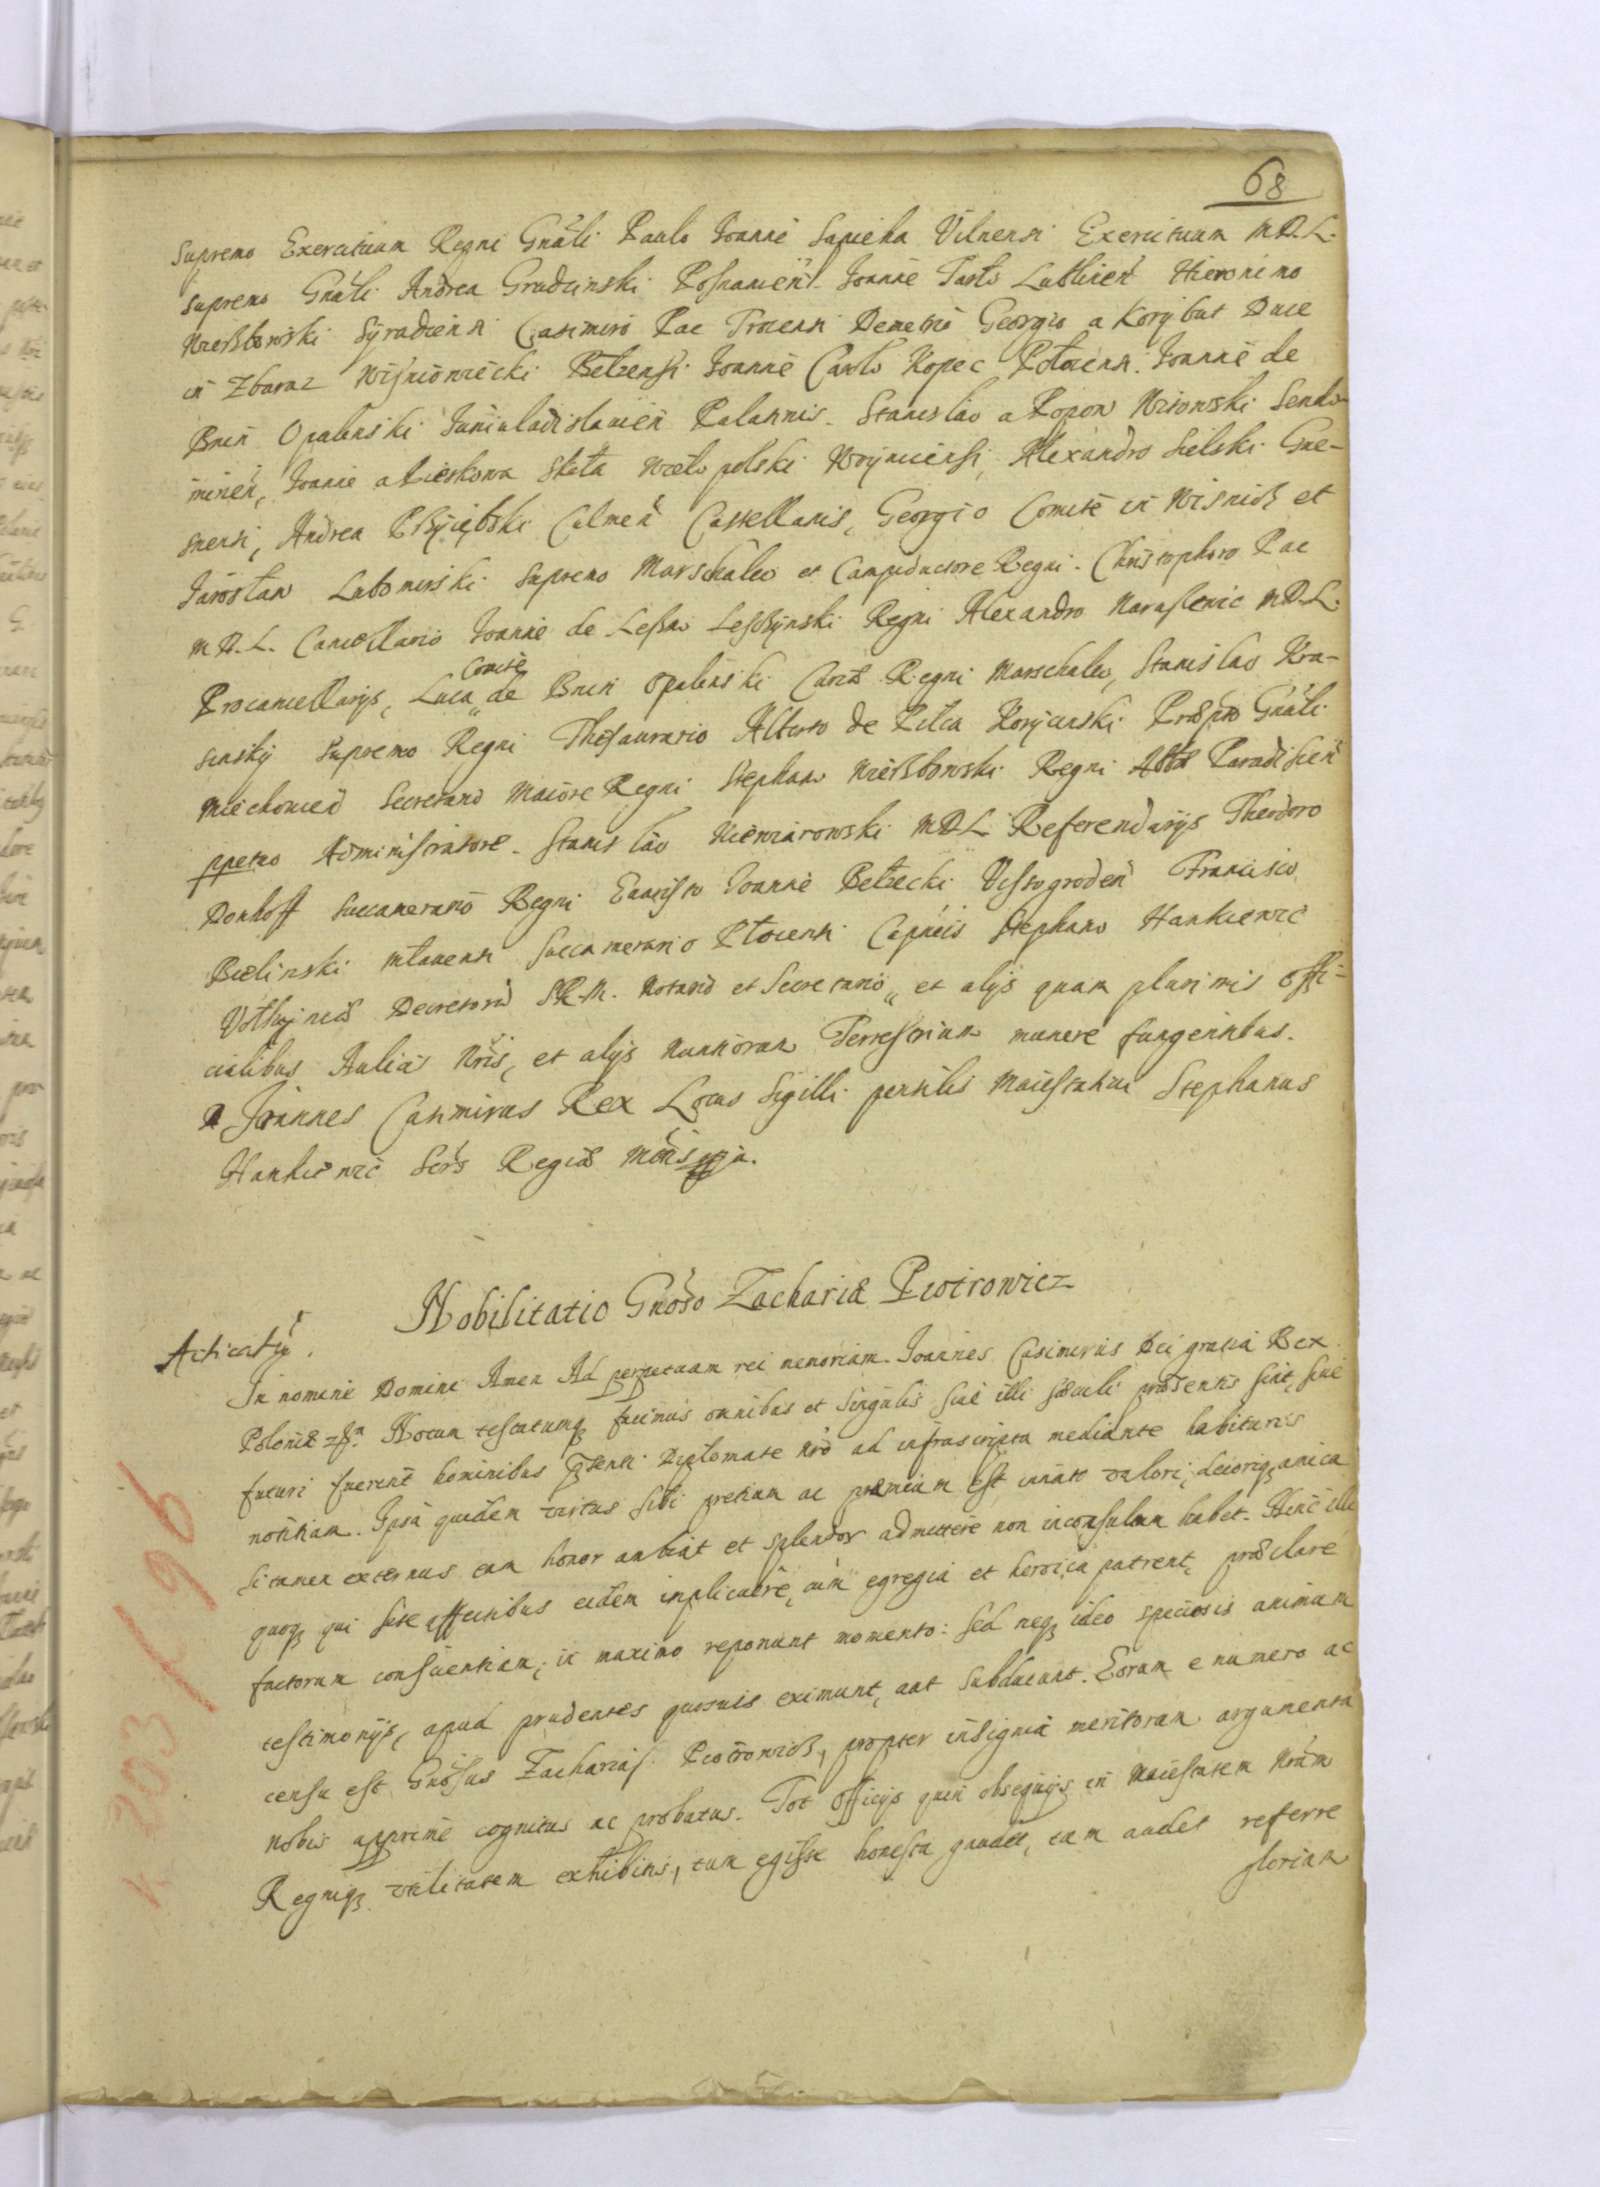 68
supremo Exercituum Regni Gnãli Paulo Joanne Sapieha Vilnensi Exercituum M.D.L.
supremo Gnãli Andrea Grudzinski Posnanień Joanne Tarło Lublineń Hieronimo
Wierzbowski Syradiensi Casimiro Pac Trocensi Demetrio Georgio a Korybut Duce
in Zbaraz Wiśniowiecki Belzensi Joanne Carolo Kopec Polocensi. Joanne de
Bnin Opalenski Juniuladislauień Palatinis. Stanislao a Popow Witowski Sendo-
mirień, Joanne a Pieskowa Skała Wielopolski Woyniciensi, Alexandro Sielski Gne-
snensi, Andrea Calmeń Castellanis, Georgio Comite in Wisnicz et
Jarosław Lubomirski Supremo Marschalco et Campiductore Regni. Christophoro Pac
M.D.L. Cancellario Joanne de Leszno Leszczynski Regni Alexandro Naruszewic M.D.L.
Procancellarijs, Luca Comite de Bnin Opalenski Curiæ Regni Marschalco, Stanislao Kra-
sinsky supremo Regni Thesaurario Alberto de Pilca Korycinski Præpto Gnãli
Miechouień Secretario Maiore Regni Stephano Wierzbowski Regni Abbã Paradisień
ppetuo Administratore. Stanislao Kiewnarowski M.D.L. Referendarijs Theodoro
Donhoff Succamerario Regni Euaristo Joanne Belzecki Vissogrodeń Francisco
Bielinski Mlauensi Succamerario Plocensi Capneis Stephano Hankiewic
Decretorũ S.R.M. Notario et Secretario, et alijs quam plurimis offi-
cialibus Aulicis Nris, et alijs Nuntiorum Terrestrium munere fungentibus.
Joannes Casimirus Rex Locus Sigilli pensilis Maiestatici Stephanus
Hankiewic Secrs Regiæ Mttis mpa.
Nobilitatio Gnoso Zachariæ Piotrowicz
Acticatũ.
In nomine Domini Amen Ad perpetuam rei memoriam. Joannes Casimirus Dei gratia Rex
Poloniæ Notum testatumq facimus omnibus et singulis siue illi sæculi præsentis sint, siue
futuri fuerint hominibus psenti Diplomate Nro ad infrascripta mediante habituris
notitiam. Ipsa quidem virtus sibi pretium ac præmium est innati valori, deiorisq amica
si tamen externus eam honor ambiat et splendor admittere non inconsultum habet. Hinc illi
quoq qui sese affectibus eidem implicuere, cum egregia et heroica patrent, præclare
factorum conscientiam, in maximo reponunt momento: sed neq ideo speciosis animum
testimonijs, apud prudentes quosuis eximunt, aut subducunt. Eorum e numero ac
censu est Gnosus Zacharias Piotrowicz, propter insignia meritorum argumenta
nobis apprime cognitus ac probatus. Tot officijs quin obsequijs in Maiestatem Nram
Regniq vtilitatem exhibitis, tum egisse honesta gaudet, tum audet referre
gloriam